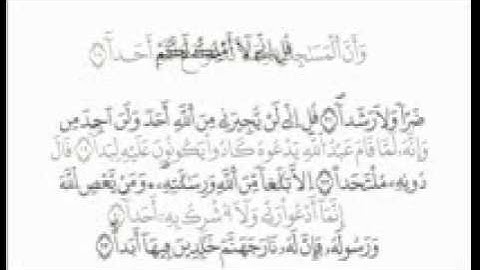 وَأَنَّ الْمَسَاجِدَ أَحَدًا
قُلْ إِنِّي لَا أَمْلِكُ لَكُمْ
ضَرًّا وَلَا رَشَدًا قُلْ إِنِّي لَنْ يُجِيرَنِي مِنَ اللَّهِ أَحَدٌ وَلَنْ أَجِدَ مِن
وَإِنَّهُ لَمَّا قَامَ عَبْدُ اللَّهِ يَدْعُوهُ كَادُوا يَكُونُونَ عَلَيْهِ لِبَدًا قَالَ
دُونِهِ مُلْتَحَدًا إِلَّا بَلَٰغًا مِنَ اللَّهِ وَرِسَٰلَٰتِهِ وَمَنْ يَعْصِ اللَّهَ
إِنَّمَا أَدْعُوا رَبِّي وَلَا أُشْرِكُ بِهِ أَحَدًا
وَرَسُولَهُ فَإِنَّ لَهُ نَارَ جَهَنَّمَ خَٰلِدِينَ فِيهَا أَبَدًا